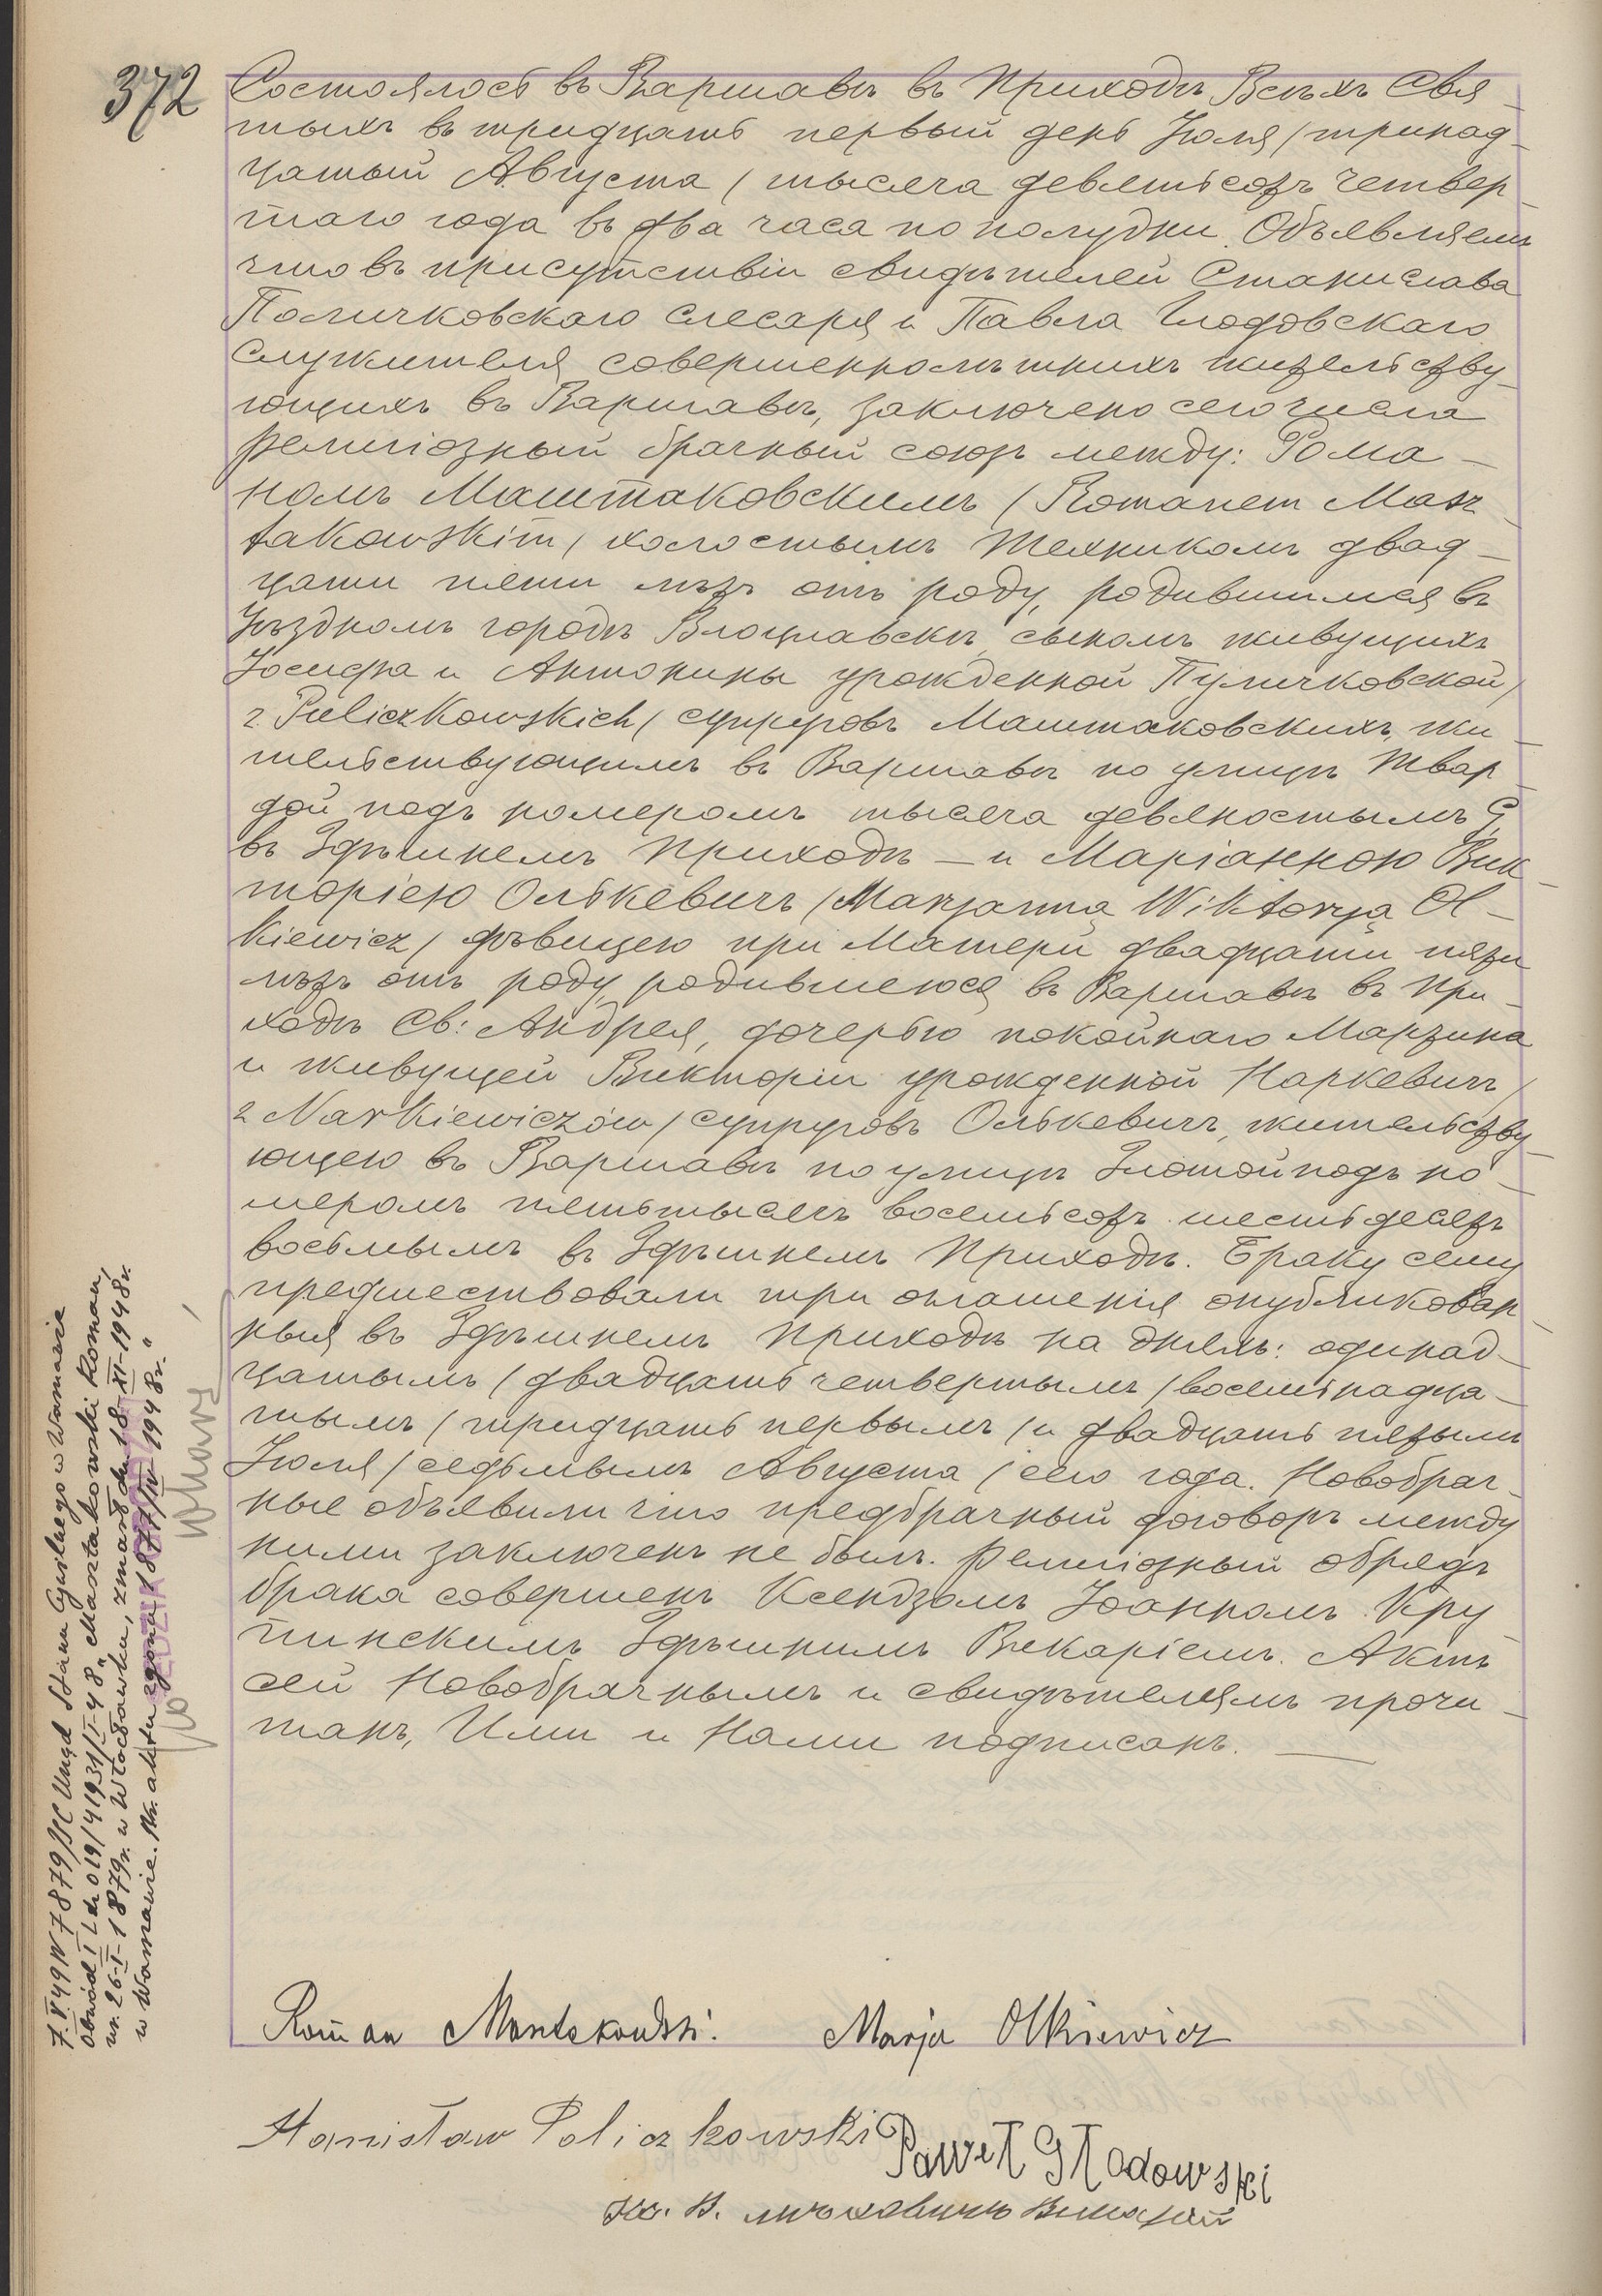 372
Состоялось въ Варшавѣ въ Приходѣ Всѣхъ Свя-
тыхъ въ тридцать первый день Іюля /тринад-
цатый Августа/ тысяча девятьсотъ четвер-
таго года въ два часа по полудни. Объявляемъ
что въ присутствіи свидѣтелей Станислава
Поличковскаго слесаря и Павла Глодовскаго
служителя совершеннолѣтнихъ жительству-
ющихъ въ Варшавѣ, заключено сего числа
религіозный брачный союзъ между: Рома-
номъ Маштаковскимъ /Romanem Masz-
takowskim/ холостымъ техникомъ двад-
цати пяти лѣтъ отъ роду, родившимся въ
Уѣздномъ городѣ Влоцлавскѣ, сыномъ живущихъ
Іосифа и Антонины урожденной Пуличковской/
z Puliczkowskich/ супруговъ Маштаковскихъ, жи-
тельствующимъ въ Варшавѣ по улицѣ Твар-
дой подъ номеромъ тысяча девяностымъ G,
въ Здѣшнемъ Приходѣ — и Маріанною Вик-
торіею Олькевичъ /Maryanną Wiktoryą Ol-
kiewicz/ дѣвицею при Матери двадцати пяти
лѣтъ отъ роду, родившеюся въ Варшавѣ въ При-
ходѣ Св: Андрея, дочерью покойнаго Мартина
и живущей Викторіи урожденной Наркевичъ/
z Narkiewiczów/ супруговъ Олькевичъ, жительству-
ющею въ Варшавѣ по улицѣ Злотой подъ но-
меромъ пятьтысячъ восемьсотъ шестьдесятъ
восьмымъ въ Здѣшнемъ Приходѣ. Браку сему
предшествовали три оглашенія опубликован-
ныя въ Здѣшнемъ Приходѣ на дняхъ: одинад-
цатымъ /двадцать четвертымъ/ восемнадца-
тымъ /тридцать первымъ/ и двадцать пятымъ
Іюля /седьмымъ Августа/ сего года. Новобрач-
ные объявили что предбрачный договоръ между
ними заключенъ не былъ. Религіозный обрядъ
брака совершенъ Ксендзомъ Іоанномъ Кру-
пинскимъ Здѣшнимъ Викаріемъ. Актъ
сей Новобрачнымъ и свидѣтелямъ прочи-
танъ, Ими и Нами подписанъ. —
Roman Masztakowski. Marja Olkiewicz
Stanisław Policzkowski Paweł Głodowski
7.V.49 N 7879/SC Urząd Stanu Cywilnego w Warszawie
Obwód I Ldz 019/41931/I-48 „Masztakowski Roman,
ur. 26-I-1879r. w Włocławku, zmarł dn. 18-XI-1948r.
w Warszawie. Nr. aktu zgonu 1877/IV 1948r."